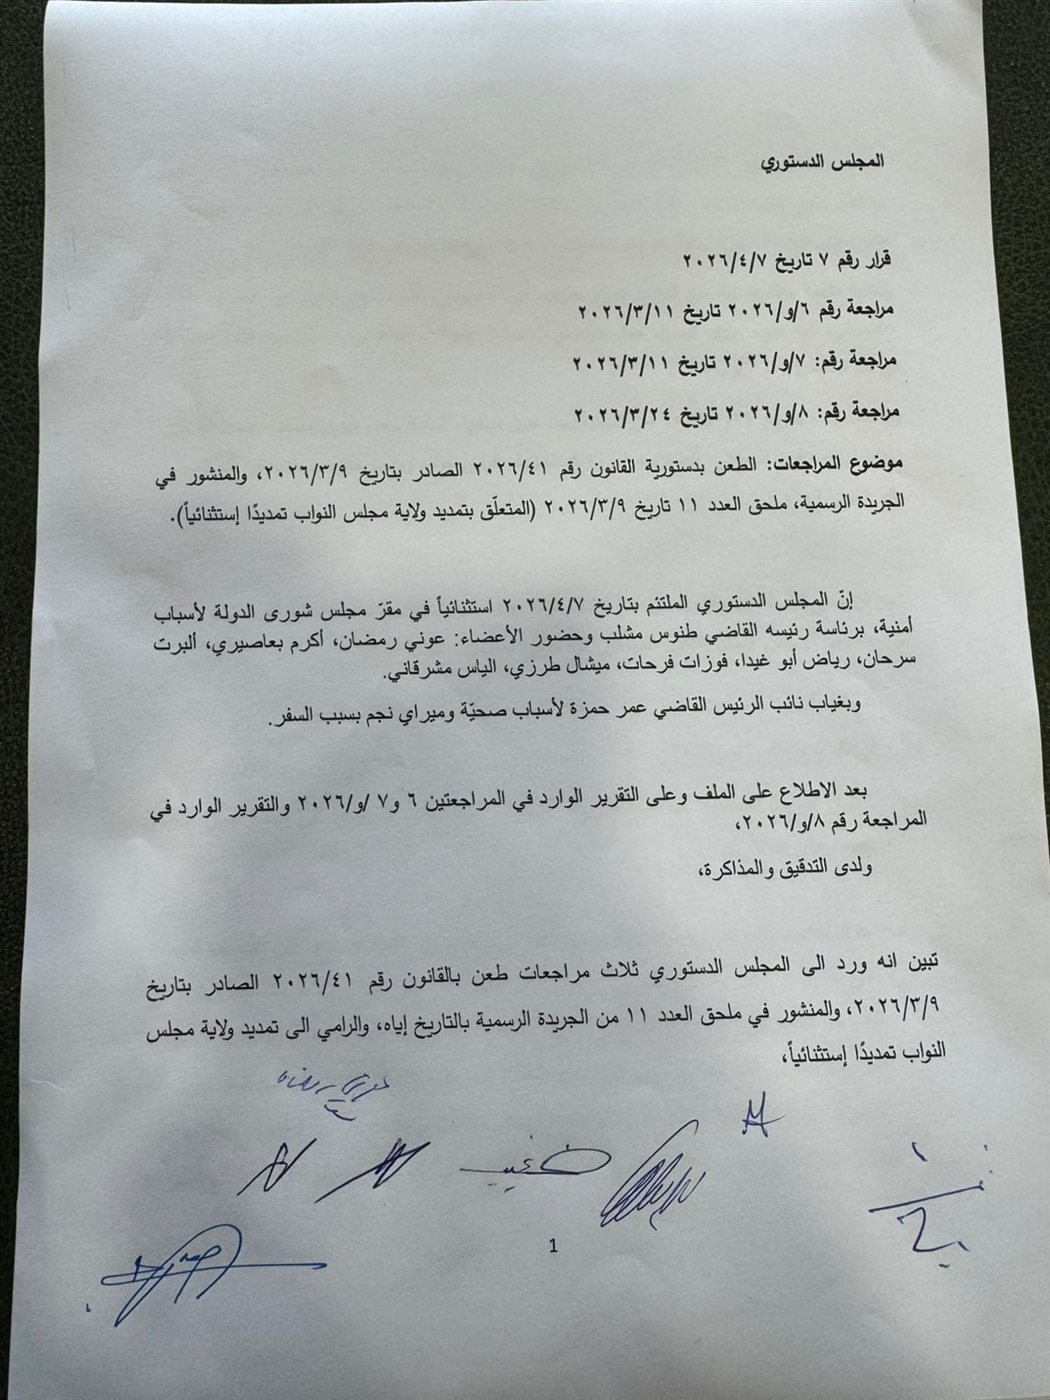 المجلس الدستوري
قرار رقم ٧ تاريخ ٢٠٢٦/٤/٧
مراجعة رقم ٦/و/٢٠٢٦ تاريخ ٢٠٢٦/٣/١١
مراجعة رقم: ٧/و/٢٠٢٦ تاريخ ٢٠٢٦/٣/١١
مراجعة رقم: ٨/و/٢٠٢٦ تاريخ ٢٠٢٦/٣/٢٤
موضوع المراجعات: الطعن بدستورية القانون رقم ٢٠٢٦/٤١ الصادر بتاريخ ٢٠٢٦/٣/٩، والمنشور في
الجريدة الرسمية، ملحق العدد ١١ تاريخ ٢٠٢٦/٣/٩ (المتعلّق بتمديد ولاية مجلس النواب تمديدًا إستثنائياً).
إنّ المجلس الدستوري الملتئم بتاريخ ٢٠٢٦/٤/٧ استثنائياً في مقرّ مجلس شورى الدولة لأسباب
أمنية، برئاسة رئيسه القاضي طنوس مشلب وحضور الأعضاء: عوني رمضان، أكرم بعاصيري، ألبرت
سرحان، رياض أبو غيدا، فوزات فرحات، ميشال طرزي، الياس مشرقاني.
وبغياب نائب الرئيس القاضي عمر حمزة لأسباب صحيّة وميراي نجم بسبب السفر.
بعد الاطلاع على الملف وعلى التقرير الوارد في المراجعتين ٦ و٧ /و/٢٠٢٦ والتقرير الوارد في
المراجعة رقم ٨/و/٢٠٢٦،
ولدى التدقيق والمذاكرة،
تبين انه ورد الى المجلس الدستوري ثلاث مراجعات طعن بالقانون رقم ٢٠٢٦/٤١ الصادر بتاريخ
٢٠٢٦/٣/٩، والمنشور في ملحق العدد ١١ من الجريدة الرسمية بالتاريخ إياه، والرامي الى تمديد ولاية مجلس
النواب تمديدًا إستثنائياً،
1